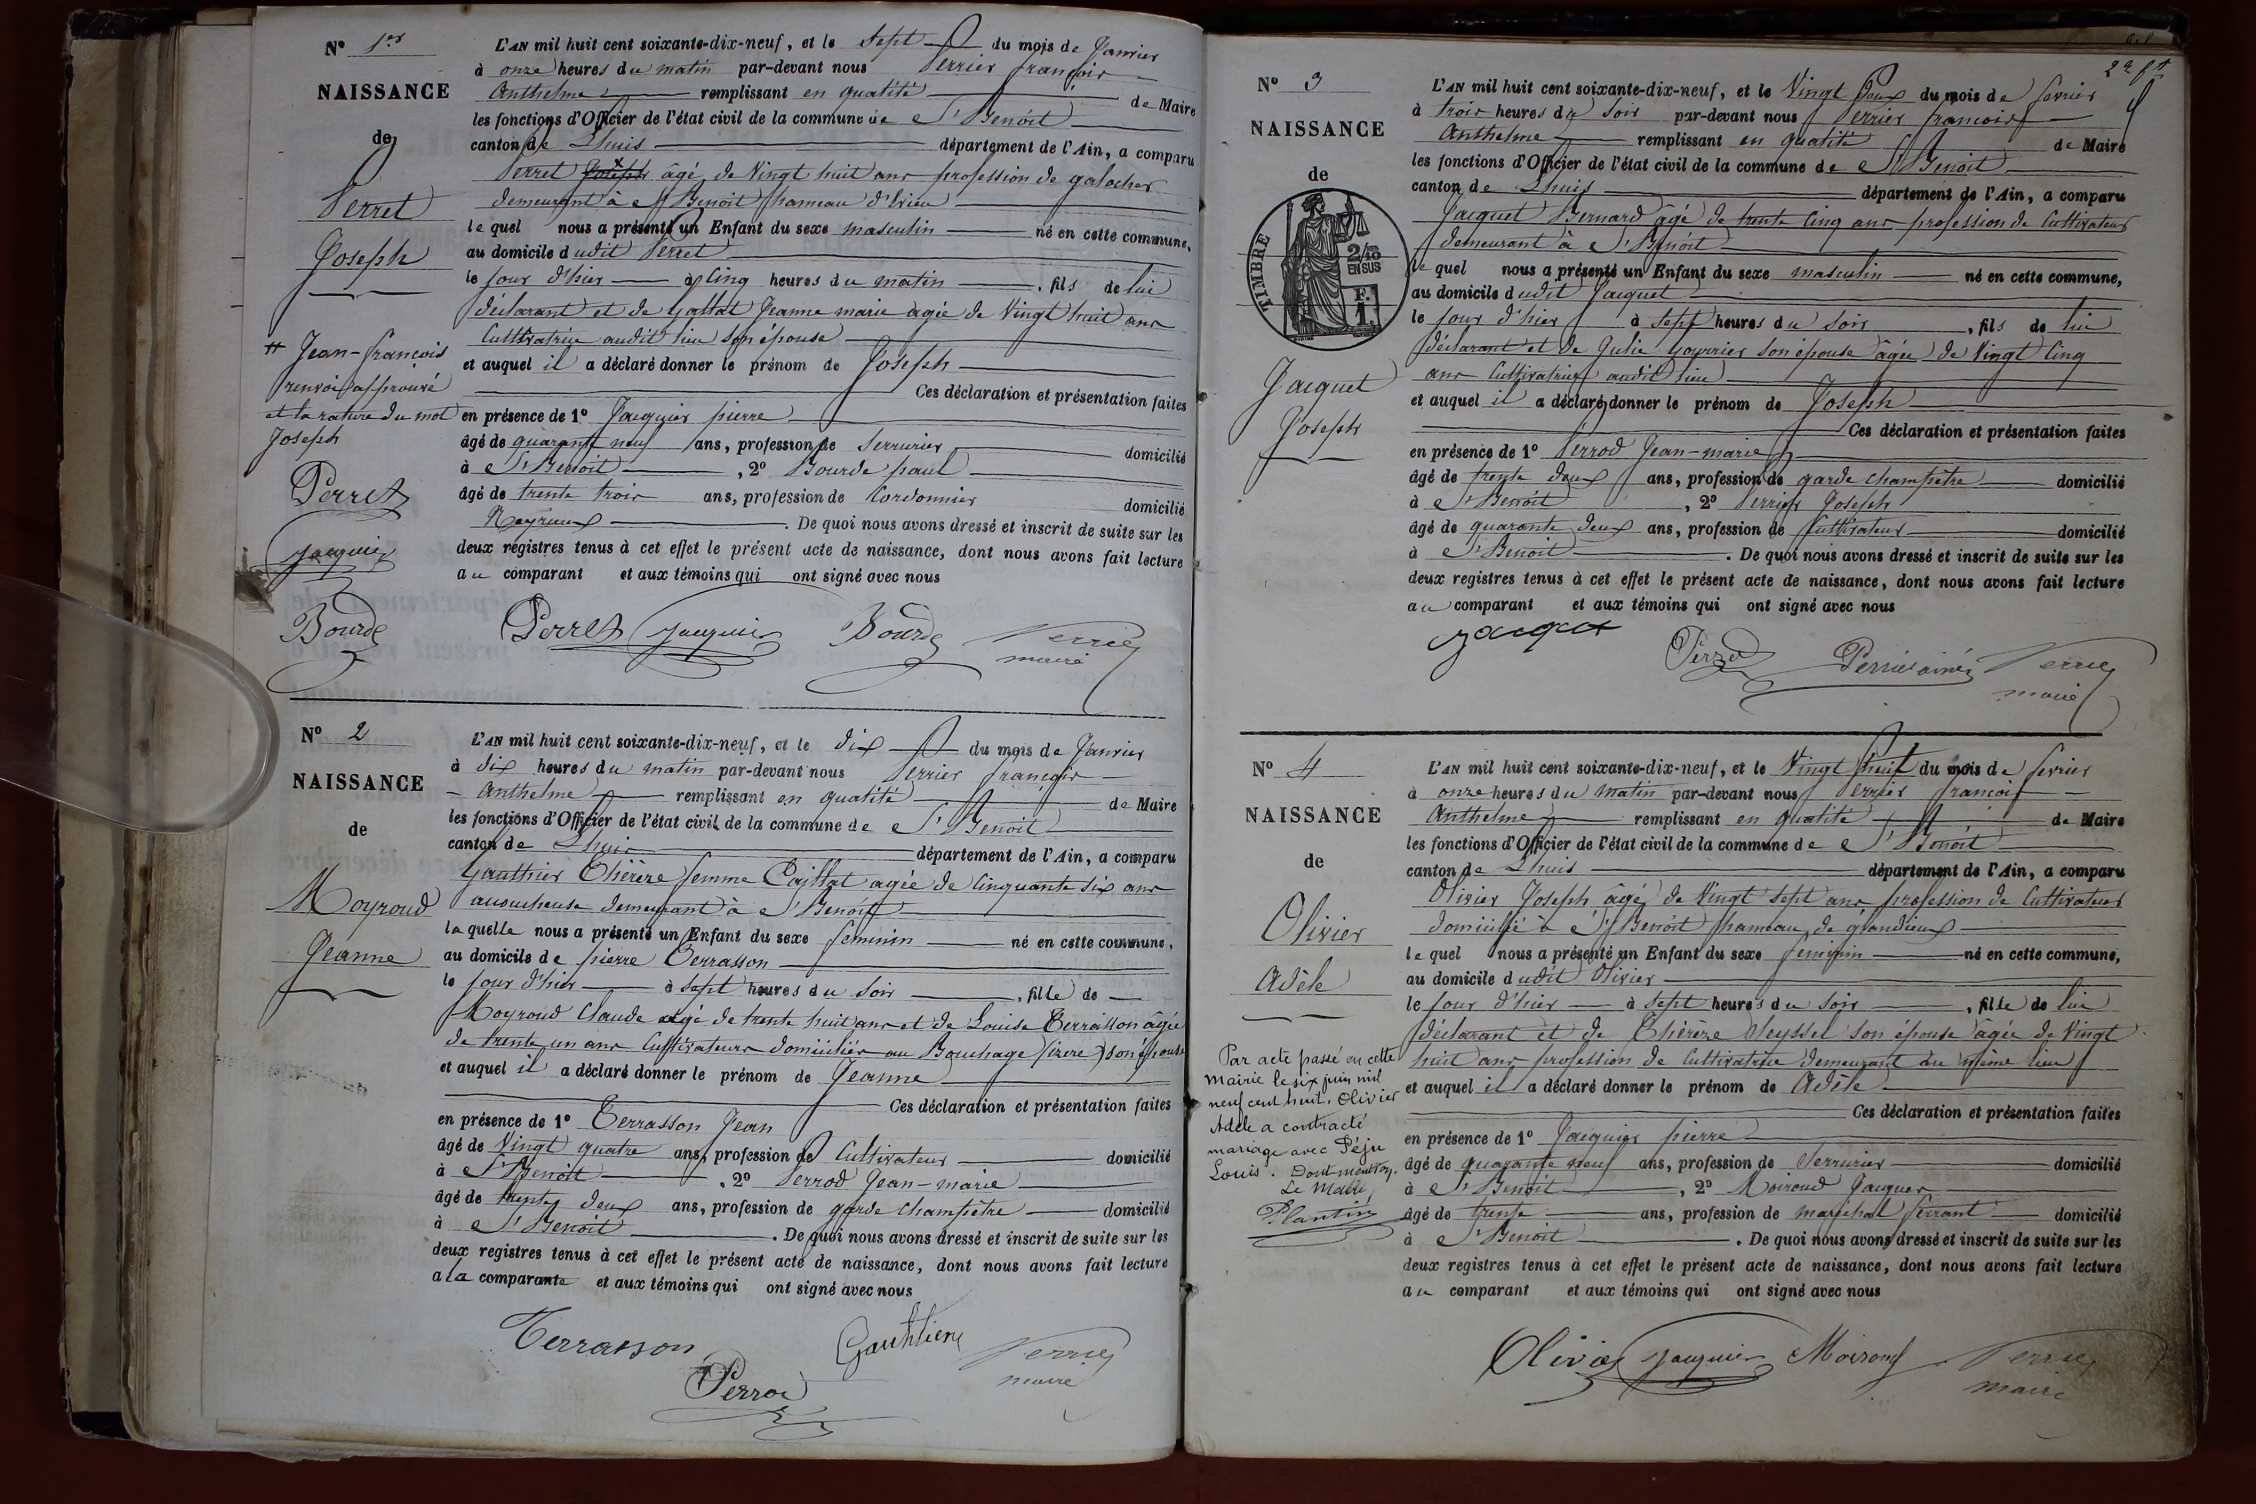 Nº 1er
NAISSANCE
de
Perret
Joseph
# Jean-françois
renvoi approuvé
et la rature du mot
Joseph
Perret
Jacquier
Bourde
L'AN mil huit cent soixante-dix-neuf, et le Sept du mois de Janvier
à onze heures du matin par-devant nous Perrier françois
Anthelme remplissant en qualité de Maire
les fonctions d'Officier de l'état civil de la commune de St Benoit
canton de Lhuis département de l'Ain, a comparu
Perret Joseph âgé de Vingt huit ans profession de galocher
demeurant à St Benoit hameau d'
le quel nous a présenté un Enfant du sexe masculin né en cette commune,
au domicile dudit Perret
le jour d'hier à Cinq heures du matin, fils de lui
déclarant et de Jeanne marie agée de Vingt huit ans
Cultivatrice audit lieu son épouse
et auquel il a déclaré donner le prénom de Joseph
Ces déclaration et présentation faites
en présence de 1º Jacquier pierre
âgé de quarante neuf ans, profession de Serrurier domicilié
à St Benoit, 2º Bourde paul
âgé de trente trois ans, profession de Cordonnier domicilié
. De quoi nous avons dressé et inscrit de suite sur les
deux registres tenus à cet effet le présent acte de naissance, dont nous avons fait lecture
au comparant et aux témoins qui ont signé avec nous
Perret Jacquier Bourde Perrier
maire
Nº 2
NAISSANCE
de
Moyroud
Jeanne
L'AN mil huit cent soixante-dix-neuf, et le dix du mois de Janvier
à dix heures du matin par-devant nous Perrier françois
Anthelme remplissant en qualité de Maire
les fonctions d'Officier de l'état civil de la commune de St Benoit
canton de Lhuis département de l'Ain, a comparu
Gauthier Thérèse femme Caillat agée de Cinquante six ans
acoucheuse demeurant à St Benoit
la quelle nous a présenté un Enfant du sexe féminin né en cette commune,
au domicile de pierre Terrasson
le jour d'hier à Sept heures du Soir, fille de
Moyroud Claude agé de trente huit ans et de Louise Terrasson âgée
de trente un ans Cultivateurs domiciliés au Bouchage (isère) son épouse
et auquel il a déclaré donner le prénom de Jeanne
Ces déclaration et présentation faites
en présence de 1º Terrasson Jean
âgé de Vingt quatre ans, profession de Cultivateur domicilié
à St Benoit, 2º Perrod Jean-marie
âgé de trente deux ans, profession de garde champêtre domicilié
à St Benoit. De quoi nous avons dressé et inscrit de suite sur les
deux registres tenus à cet effet le présent acte de naissance, dont nous avons fait lecture
a la comparante et aux témoins qui ont signé avec nous
Terrasson Gauthier Perrier
Perrod maire
2e ft
Nº 3
NAISSANCE
de
TIMBRE
2/10
EN SUS
F.
1.
Jacquet
Joseph
L'AN mil huit cent soixante-dix-neuf, et le Vingt Deux du mois de fevrier
à trois heures du Soir par-devant nous Perrier françois
Anthelme remplissant en qualité de Maire
les fonctions d'Officier de l'état civil de la commune de St Benoit
canton de Lhuis département de l'Ain, a comparu
Jacquet Bernard âgé de trente Cinq ans profession de Cultivateur
demeurant à St Benoit
le quel nous a présenté un Enfant du sexe masculin né en cette commune,
au domicile dudit Jacquet
le jour d'hier à Sept heures du Soir, fils de lui
déclarant et de Julie son épouse âgée de Vingt Cinq
ans Cultivatrice audit lieu
et auquel il a déclaré donner le prénom de Joseph
Ces déclaration et présentation faites
en présence de 1º Perrod Jean-marie
âgé de trente deux ans, profession de garde champêtre domicilié
à St Benoit, 2º Perrier Joseph
âgé de quarante deux ans, profession de Cultivateur domicilié
à St Benoit. De quoi nous avons dressé et inscrit de suite sur les
deux registres tenus à cet effet le présent acte de naissance, dont nous avons fait lecture
au comparant et aux témoins qui ont signé avec nous
Jacquet
Perrod Perrier ainé Perrier
maire
Nº 4
NAISSANCE
de
Olivier
Adèle
Par acte passé en cette
Mairie le six juin mil
neuf cent huit, Olivier
Adèle a contracté
mariage avec Péju
Louis. Dont mention.
Le Maire,
Plantin
L'AN mil huit cent soixante-dix-neuf, et le Vingt huit du mois de fevrier
à onze heures du matin par-devant nous Perrier françois
Anthelme remplissant en qualité de Maire
les fonctions d'Officier de l'état civil de la commune de St Benoit
canton de Lhuis département de l'Ain, a comparu
Olivier Joseph âgé de Vingt sept ans profession de Cultivateur
domicilié à St Benoit hameau de glandieux
le quel nous a présenté un Enfant du sexe feminin né en cette commune,
au domicile dudit Olivier
le jour d'hier à Sept heures du Soir, fille de lui
déclarant et de Thérèse Seyssel son épouse âgée de Vingt
huit ans profession de Cultivatrice demeurant au même lieu
et auquel il a déclaré donner le prénom de Adèle
Ces déclaration et présentation faites
en présence de 1º Jacquier pierre
âgé de quarante neuf ans, profession de Serrurier domicilié
à St Benoit, 2º Moiroud Jacques
âgé de trente ans, profession de maréchal ferrant domicilié
à St Benoit. De quoi nous avons dressé et inscrit de suite sur les
deux registres tenus à cet effet le présent acte de naissance, dont nous avons fait lecture
au comparant et aux témoins qui ont signé avec nous
Olivier Jacquier Moiroud Perrier
maire